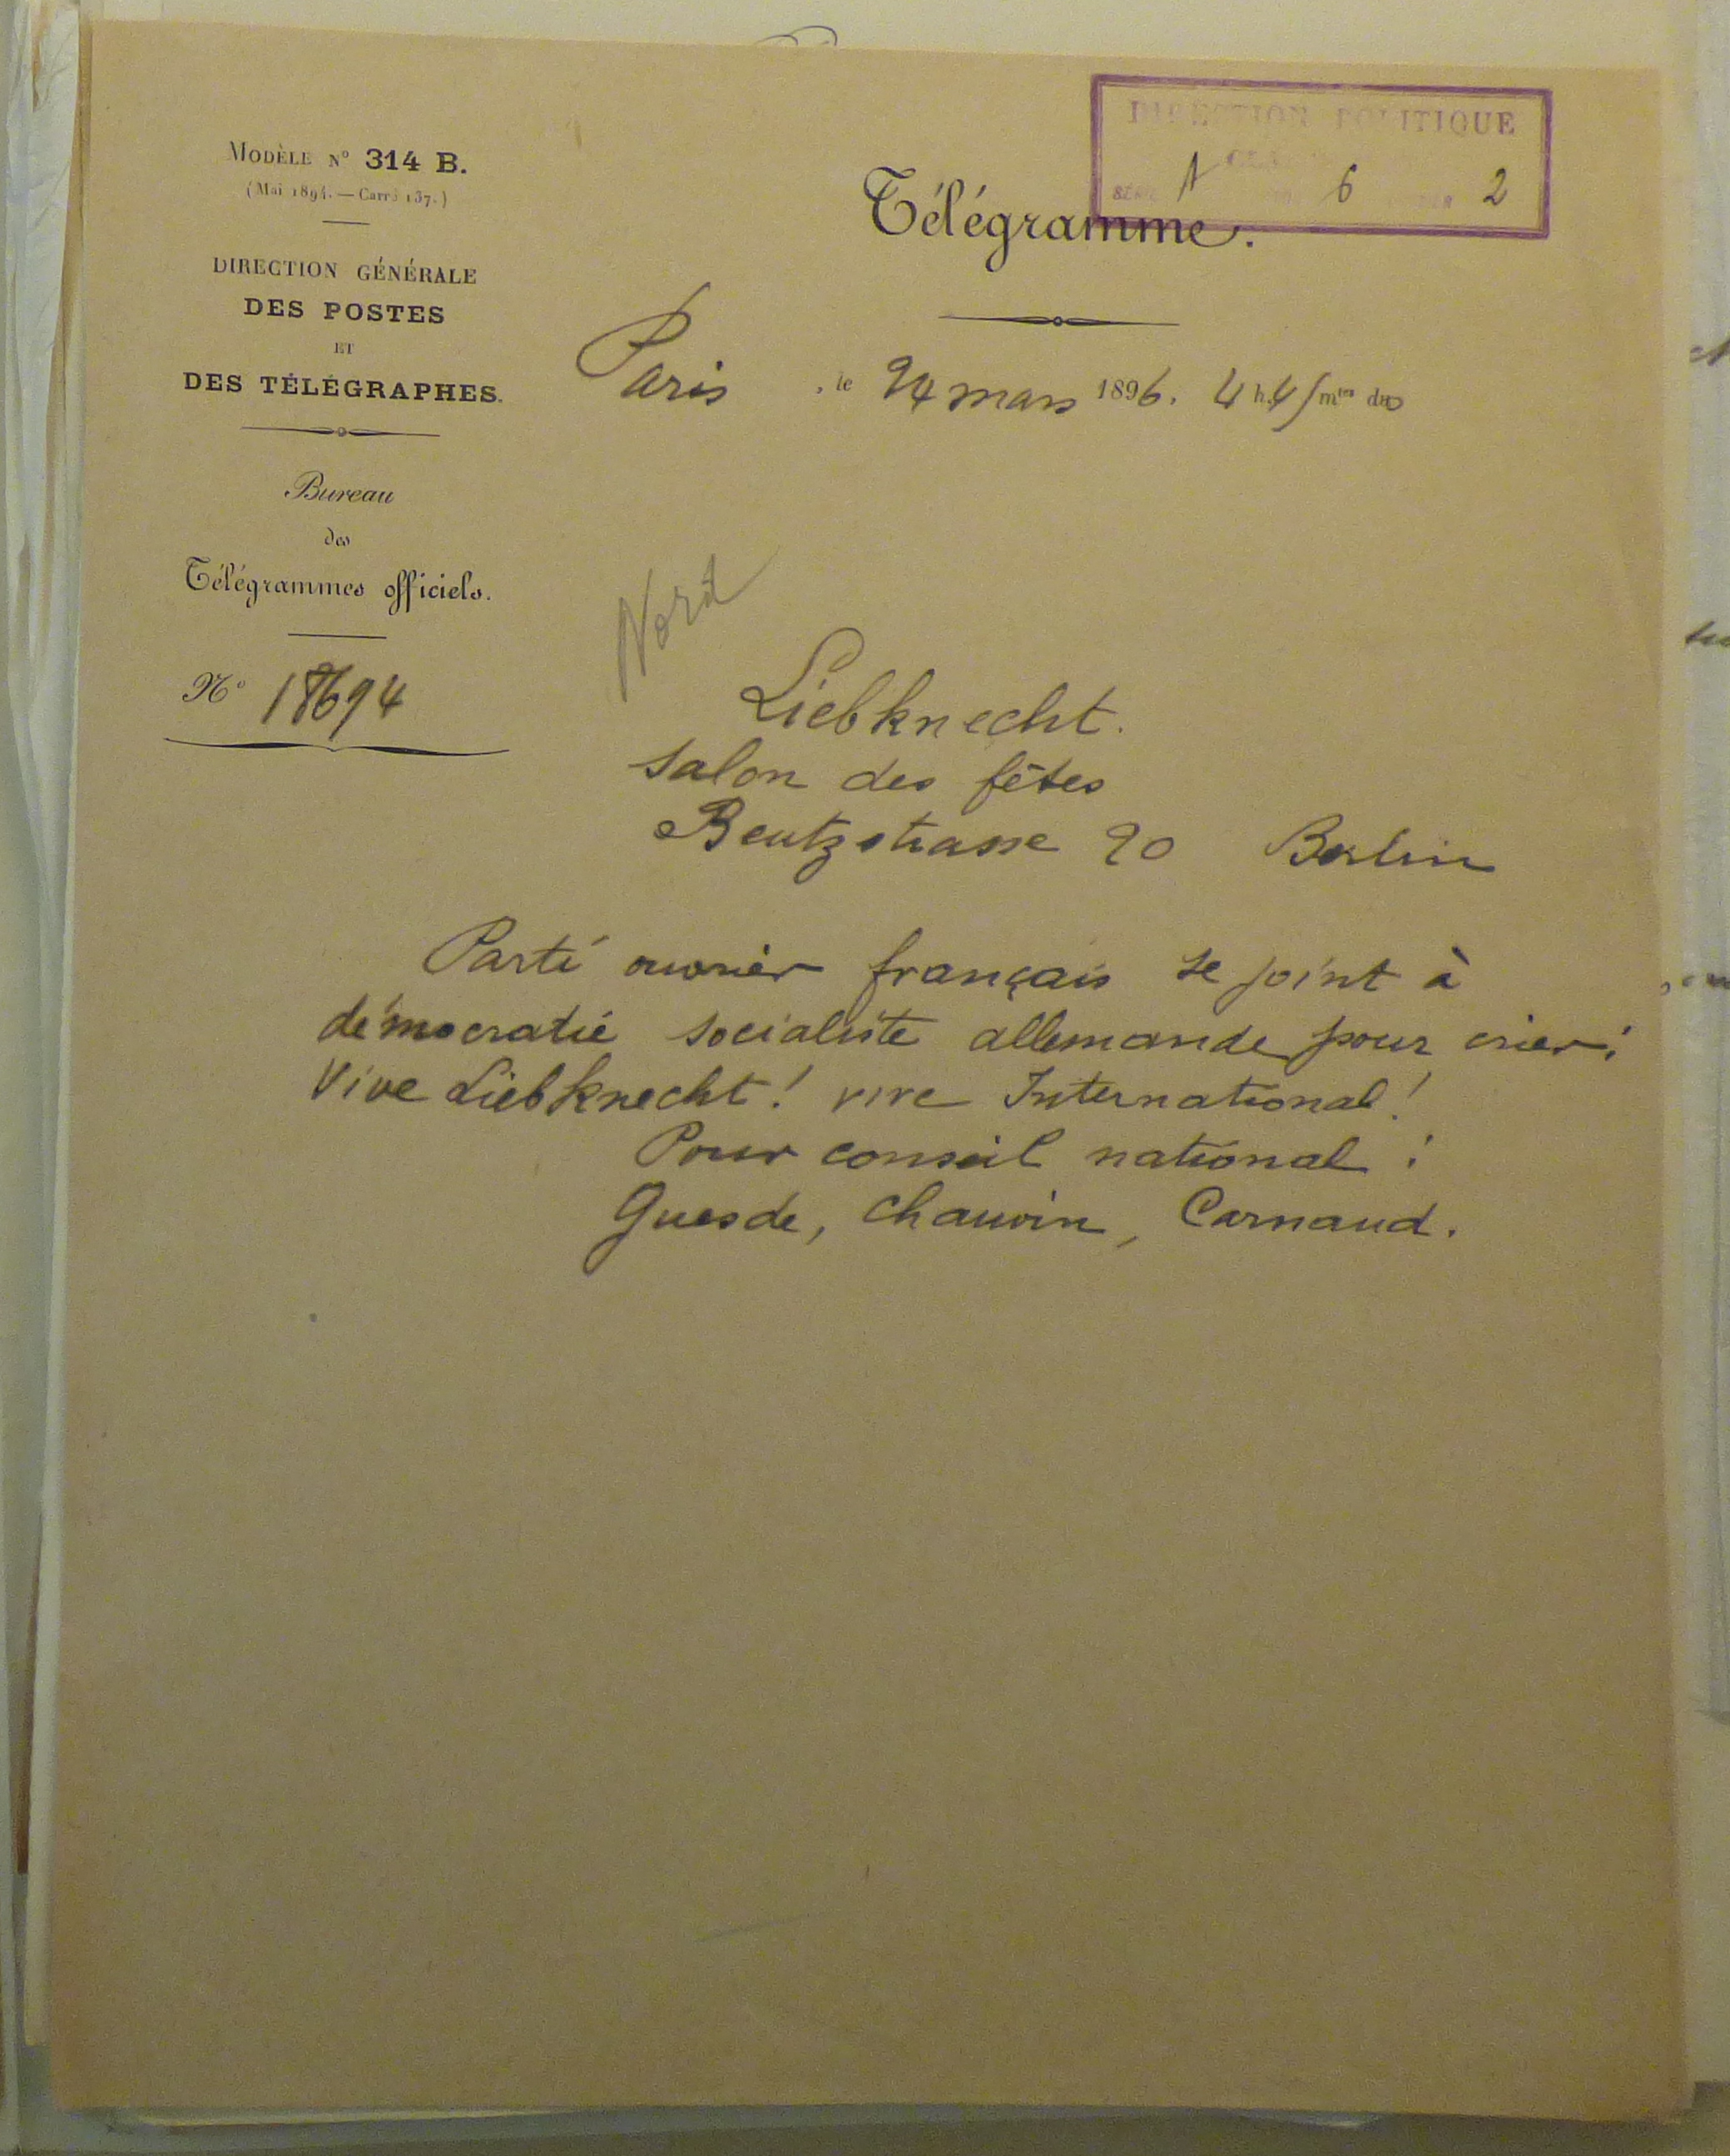 DIRECTION POLITIQUE
A 6 2
MODÈLE N° 314 B.
(Mai 1894. — Carré 137.)
DIRECTION GÉNÉRALE
DES POSTES
ET
DES TÉLÉGRAPHES.
Bureau
des
Télégrammes officiels.
N° 18694
Télégramme.
Paris, le 24 mars 1896. 4 h. 45 mtes du s
Nord
Liebknecht.
salon des fêtes
Beutzstrasse 20 Berlin
Parti ouvrier français se joint à
démocratie socialiste allemande pour crier:
Vive Liebknecht! vive International!
Pour conseil national :
Guesde, Chauvin, Carnaud.